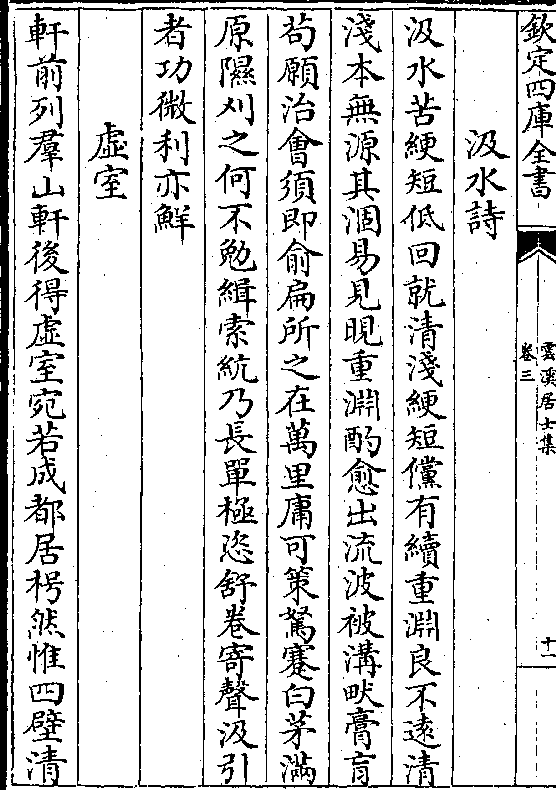 欽定四庫全書
雲溪居士集
卷三
十一
汲水詩
汲水苦綆短低回就清淺綆短儻有續重淵良不遠清
淺本無源其涸易見晛重淵酌愈出流波被溝畎膏肓
苟願治會須即俞扁所之在萬里庸可策駑蹇白茅滿
原隰刈之何不勉緝索統乃長單極恣舒卷寄聲汲引
者功微利亦鮮
虛室
軒前列羣山軒後得虛室宛若成都居枵然惟四壁清